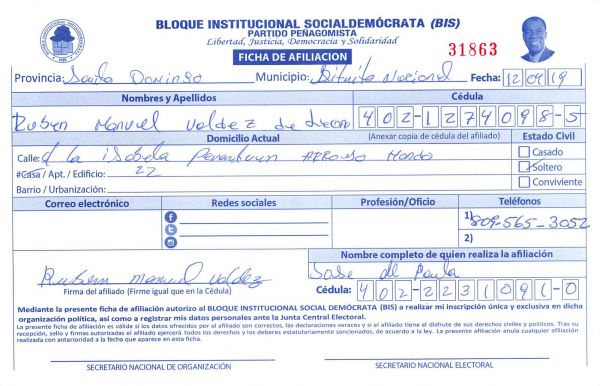 BLOQUE INSTITUCIONAL SOCIALDEMÓCRATA (BIS)
PARTIDO PEÑAGOMISTA
Libertad, Justicia, Democracia y Solidaridad
31863
FICHA DE AFILIACION
Provincia: Santo Domingo Municipio: Distrito Nacional Fecha: 12/04/19
Nombres y Apellidos Cédula
Ruben Manuel Valdez de Leon 402-1274098-5
Domicilio Actual (Anexar copia de cédula del afiliado) Estado Civil
Calle: la isabela Arroyo Hondo
Casado
#Casa / Apt. / Edificio: 22
Soltero
Barrio / Urbanización:
Conviviente
Correo electrónico Redes sociales Profesión/Oficio Teléfonos
1) 809-565-3052
2)
Nombre completo de quien realiza la afiliación
Ruben Manuel Valdez
Jose de Paula
Firma del afiliado (Firme igual que en la Cédula)
Cédula: 402-2231091-0
Mediante la presente ficha de afiliación autorizo al BLOQUE INSTITUCIONAL SOCIAL DEMÓCRATA (BIS) a realizar mi inscripción única y exclusiva en dicha
organización política, así como a registrar mis datos personales ante la Junta Central Electoral.
La presente ficha de afiliación es válida si los datos ofrecidos por el afiliado son correctos, las declaraciones veraces y si el afiliado tiene el disfrute de sus derechos civiles y políticos. Tras su
recepción, sello y firmas autorizadas el afiliado ejercerá todos los derechos y los deberes estatutariamente sancionados, de acuerdo a la ley. La presente afiliación anula cualquier afiliación
realizada con anterioridad a la fecha que aparece en esta ficha.
SECRETARIO NACIONAL DE ORGANIZACIÓN
SECRETARIO NACIONAL ELECTORAL